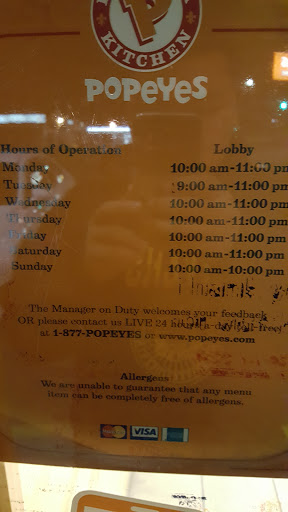 KITCHEN
POPEYES
Hours of Operation Lobby
Monday 10:00 am-11:00 pm
Tuesday 9:00 am-11:00 pm
Wednesday 10:00 am-11:00 pm
Thursday 10:00 am-11:00 pm
Friday 10:00 am-11:00 pm
Saturday 10:00 am-11:00 pm
Sunday 10:00 am-10:00 pm
The Manager on Duty welcomes your feedback
OR please contact us LIVE 24 hours-a-day (toll free)
at 1-877-POPEYES or www.popeyes.com
Allergens
We are unable to guarantee that any menu
item can be completely free of allergens.
VISA